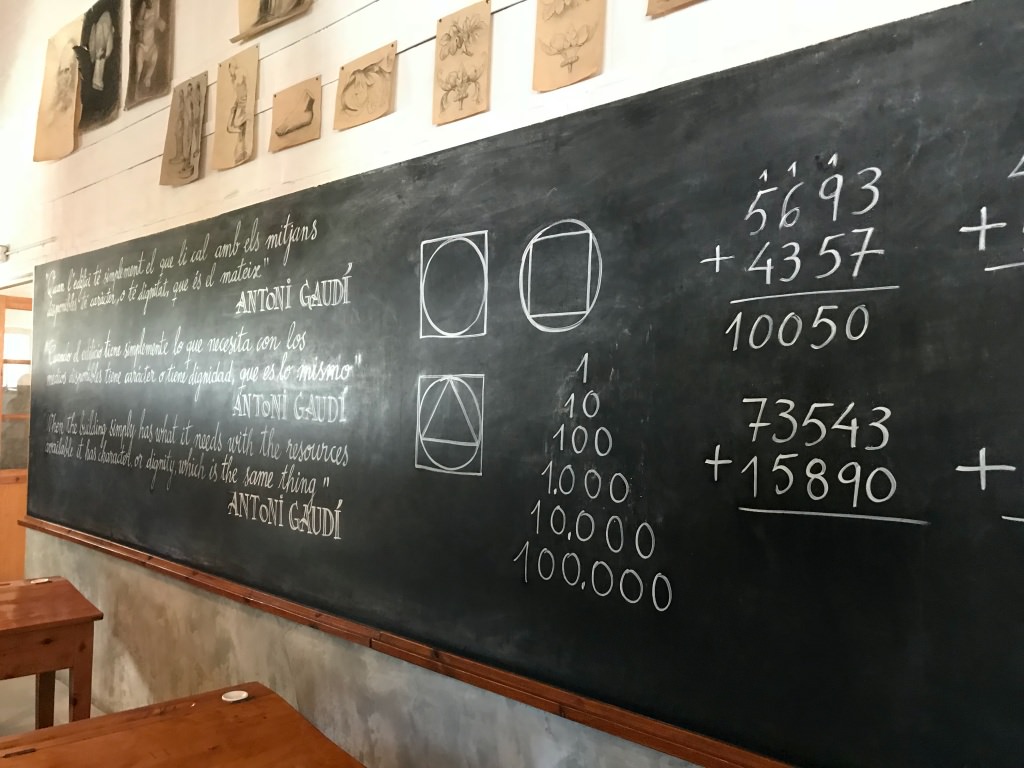 "Quan l'edifici té simplement el que li cal amb els mitjans
disponibles té caràcter, o té dignitat, que és el mateix"
ANTONI GAUDÍ
"Cuando el edificio tiene simplemente lo que necesita con los
medios disponibles tiene carácter o tiene dignidad, que es lo mismo"
ANTONI GAUDÍ
"When the building simply has what it needs with the resources
available it has character, or dignity, which is the same thing"
ANTONI GAUDÍ
1
10
100
1.000
10.000
100.000
1 1 1
5693
+ 4357
10050
73543
+ 15890
+
+